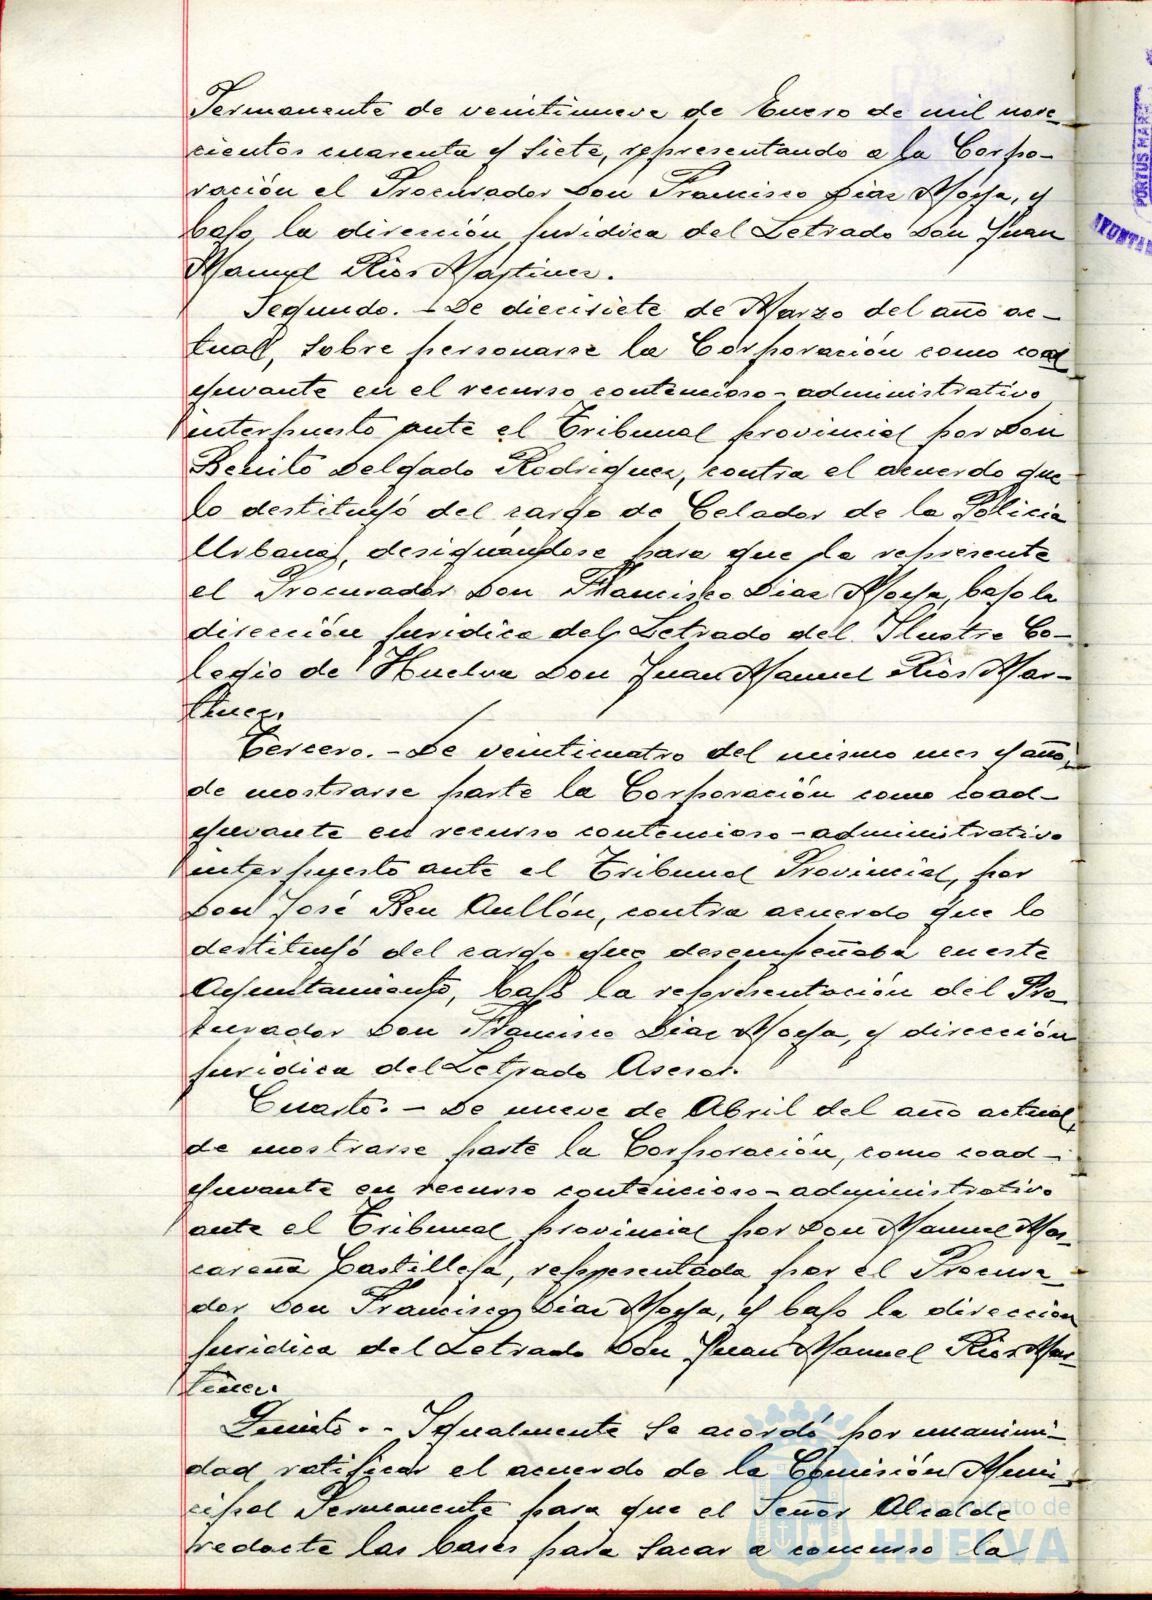 Permanente de veintinueve de Enero de mil nove-
cientos cuarenta y siete, representando a la Corpo-
ración el Procurador Don Francisco Diaz Moya, y
bajo la dirección juridica del Letrado Don Juan
Manuel Rios Martinez.
Segundo. - De diecisiete de Marzo del año ac-
tual, sobre personarse la Corporación como coad
yuvante en el recurso contencioso-administrativo
interpuesto ante el Tribunal provincial por Don
Benito Delgado Rodriguez, contra el acuerdo que
lo destituyó del cargo de Celador de la Policia
Urbana, designándose para que la represente
el Procurador Don Francisco Diaz Moya, bajo la
dirección juridica del Letrado del Ilustre Co-
legio de Huelva Don Juan Manuel Rios Mar-
tinez.
Tercero. - De veinticuatro del mismo mes y año,
de mostrarse parte la Corporación como coad-
yuvante en recurso contencioso-administrativo
interpuesto ante el Tribunal Provincial, por
Don José Aullón, contra acuerdo que lo
destituyó del cargo que desempeñaba en este
Ayuntamiento, bajo la representación del Pro-
curador Don Francisco Diaz Moya, y dirección
juridica del Letrado Asesor.
Cuarto. - De nueve de Abril del año actual,
de mostrarse parte la Corporación, como coad-
yuvante en recurso contencioso-administrativo
ante el Tribunal provincial por Don Manuel Mas-
careña Castilleja, representada por el Procura-
dor Don Francisco Diaz Moya, y bajo la direccion
juridica del Letrado Don Juan Manuel Rios Mar-
tinez.
Quinto. - Igualmente se acordó por unanimi-
dad ratificar el acuerdo de la Comisión Muni-
cipal Permanente para que el Señor Alcalde
redacte las bases para sacar a concurso la
PORTUS MARIS
AYUNTA
Ayuntamiento de
HUELVA